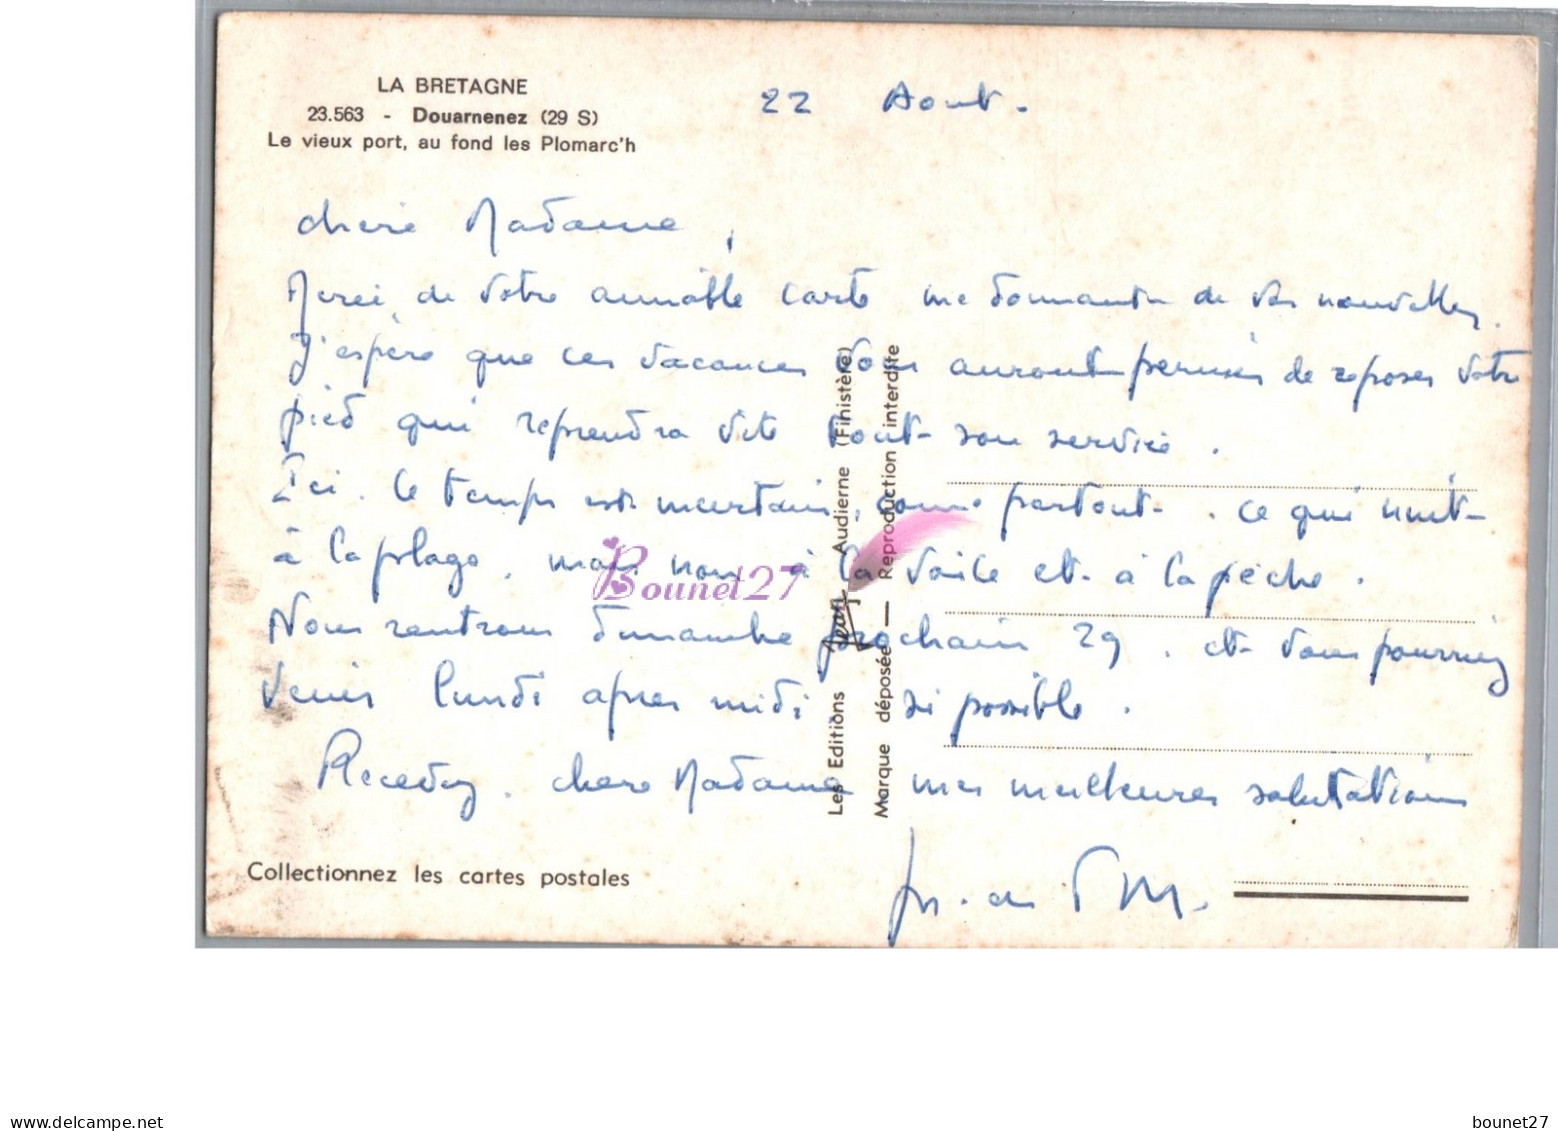 LA BRETAGNE
23.563 - Douarnenez (29 S)
Le vieux port, au fond les Plomarc'h
22 Aout.
chere Madame,
Merci de votre aimable carte me donnant de vos nouvelles.
J'espère que ces vacances vous auront permis de reposer votre
pied qui reprendra vite tout son service.
Ici, le temps est incertain, comme partout. ce qui nuit
à la plage, mais non à la voile et à la pèche.
Nous rentrons dimanche prochain 29, et vous pourriez
venir lundi apres midi si possible.
Recevez, chere Madame mes meilleures salutations
Les Editions Jean Audierne (Finistère)
Marque déposée — Reproduction interdite
Bounet27
Collectionnez les cartes postales
www.delcampe.net
bounet27